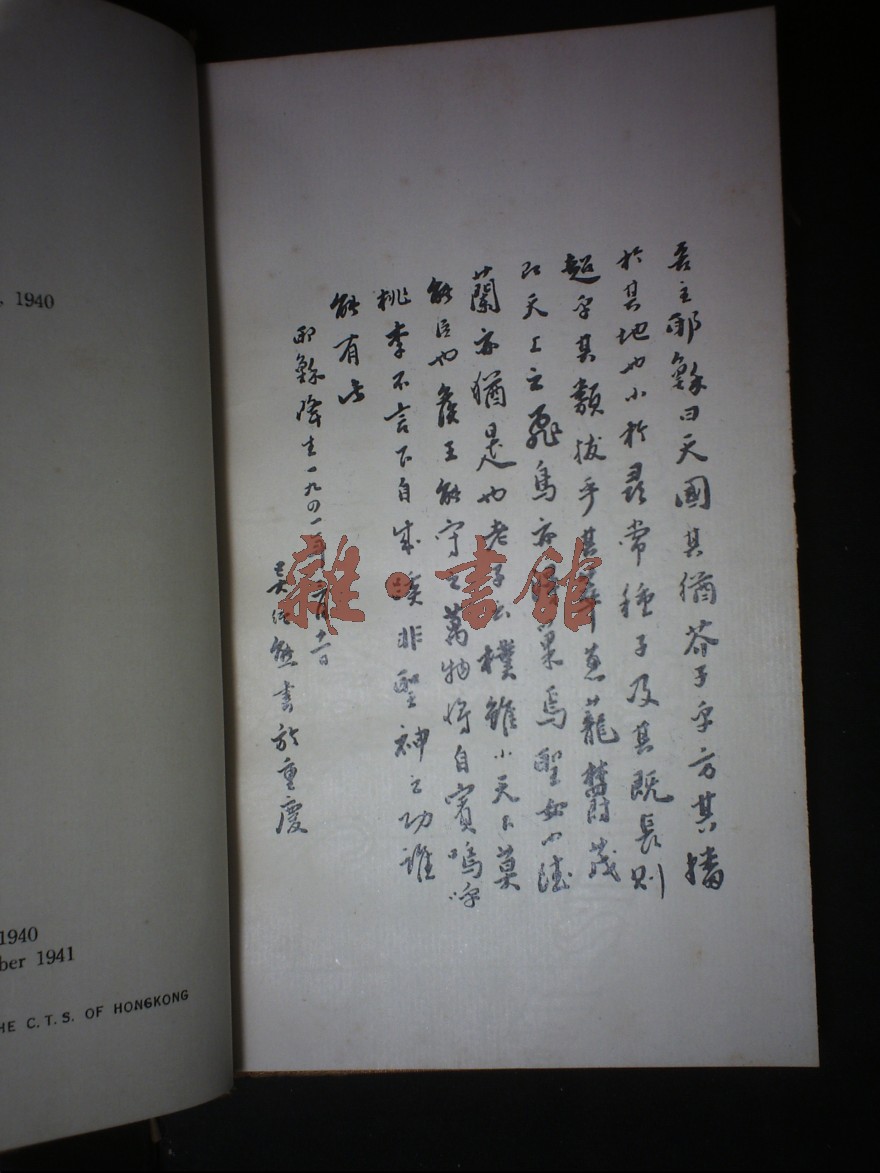 , 1940
1940
ber 1941
HE C. T. S. OF HONGKONG
吾主耶穌曰天國其猶芥子乎方其播
於其地也小於尋常種子及其既長則
超乎其類拔乎其萃葱蘢茂
即天上之飛鳥亦歸巢焉聖女小德
蘭亦猶是也老子云樸雖小天下莫
能臣也侯王能守之萬物將自賓嗚呼
桃李不言下自成蹊非聖神之功誰
能有此
耶穌降生一九四一年
吳經熊書於重慶
雜·書館